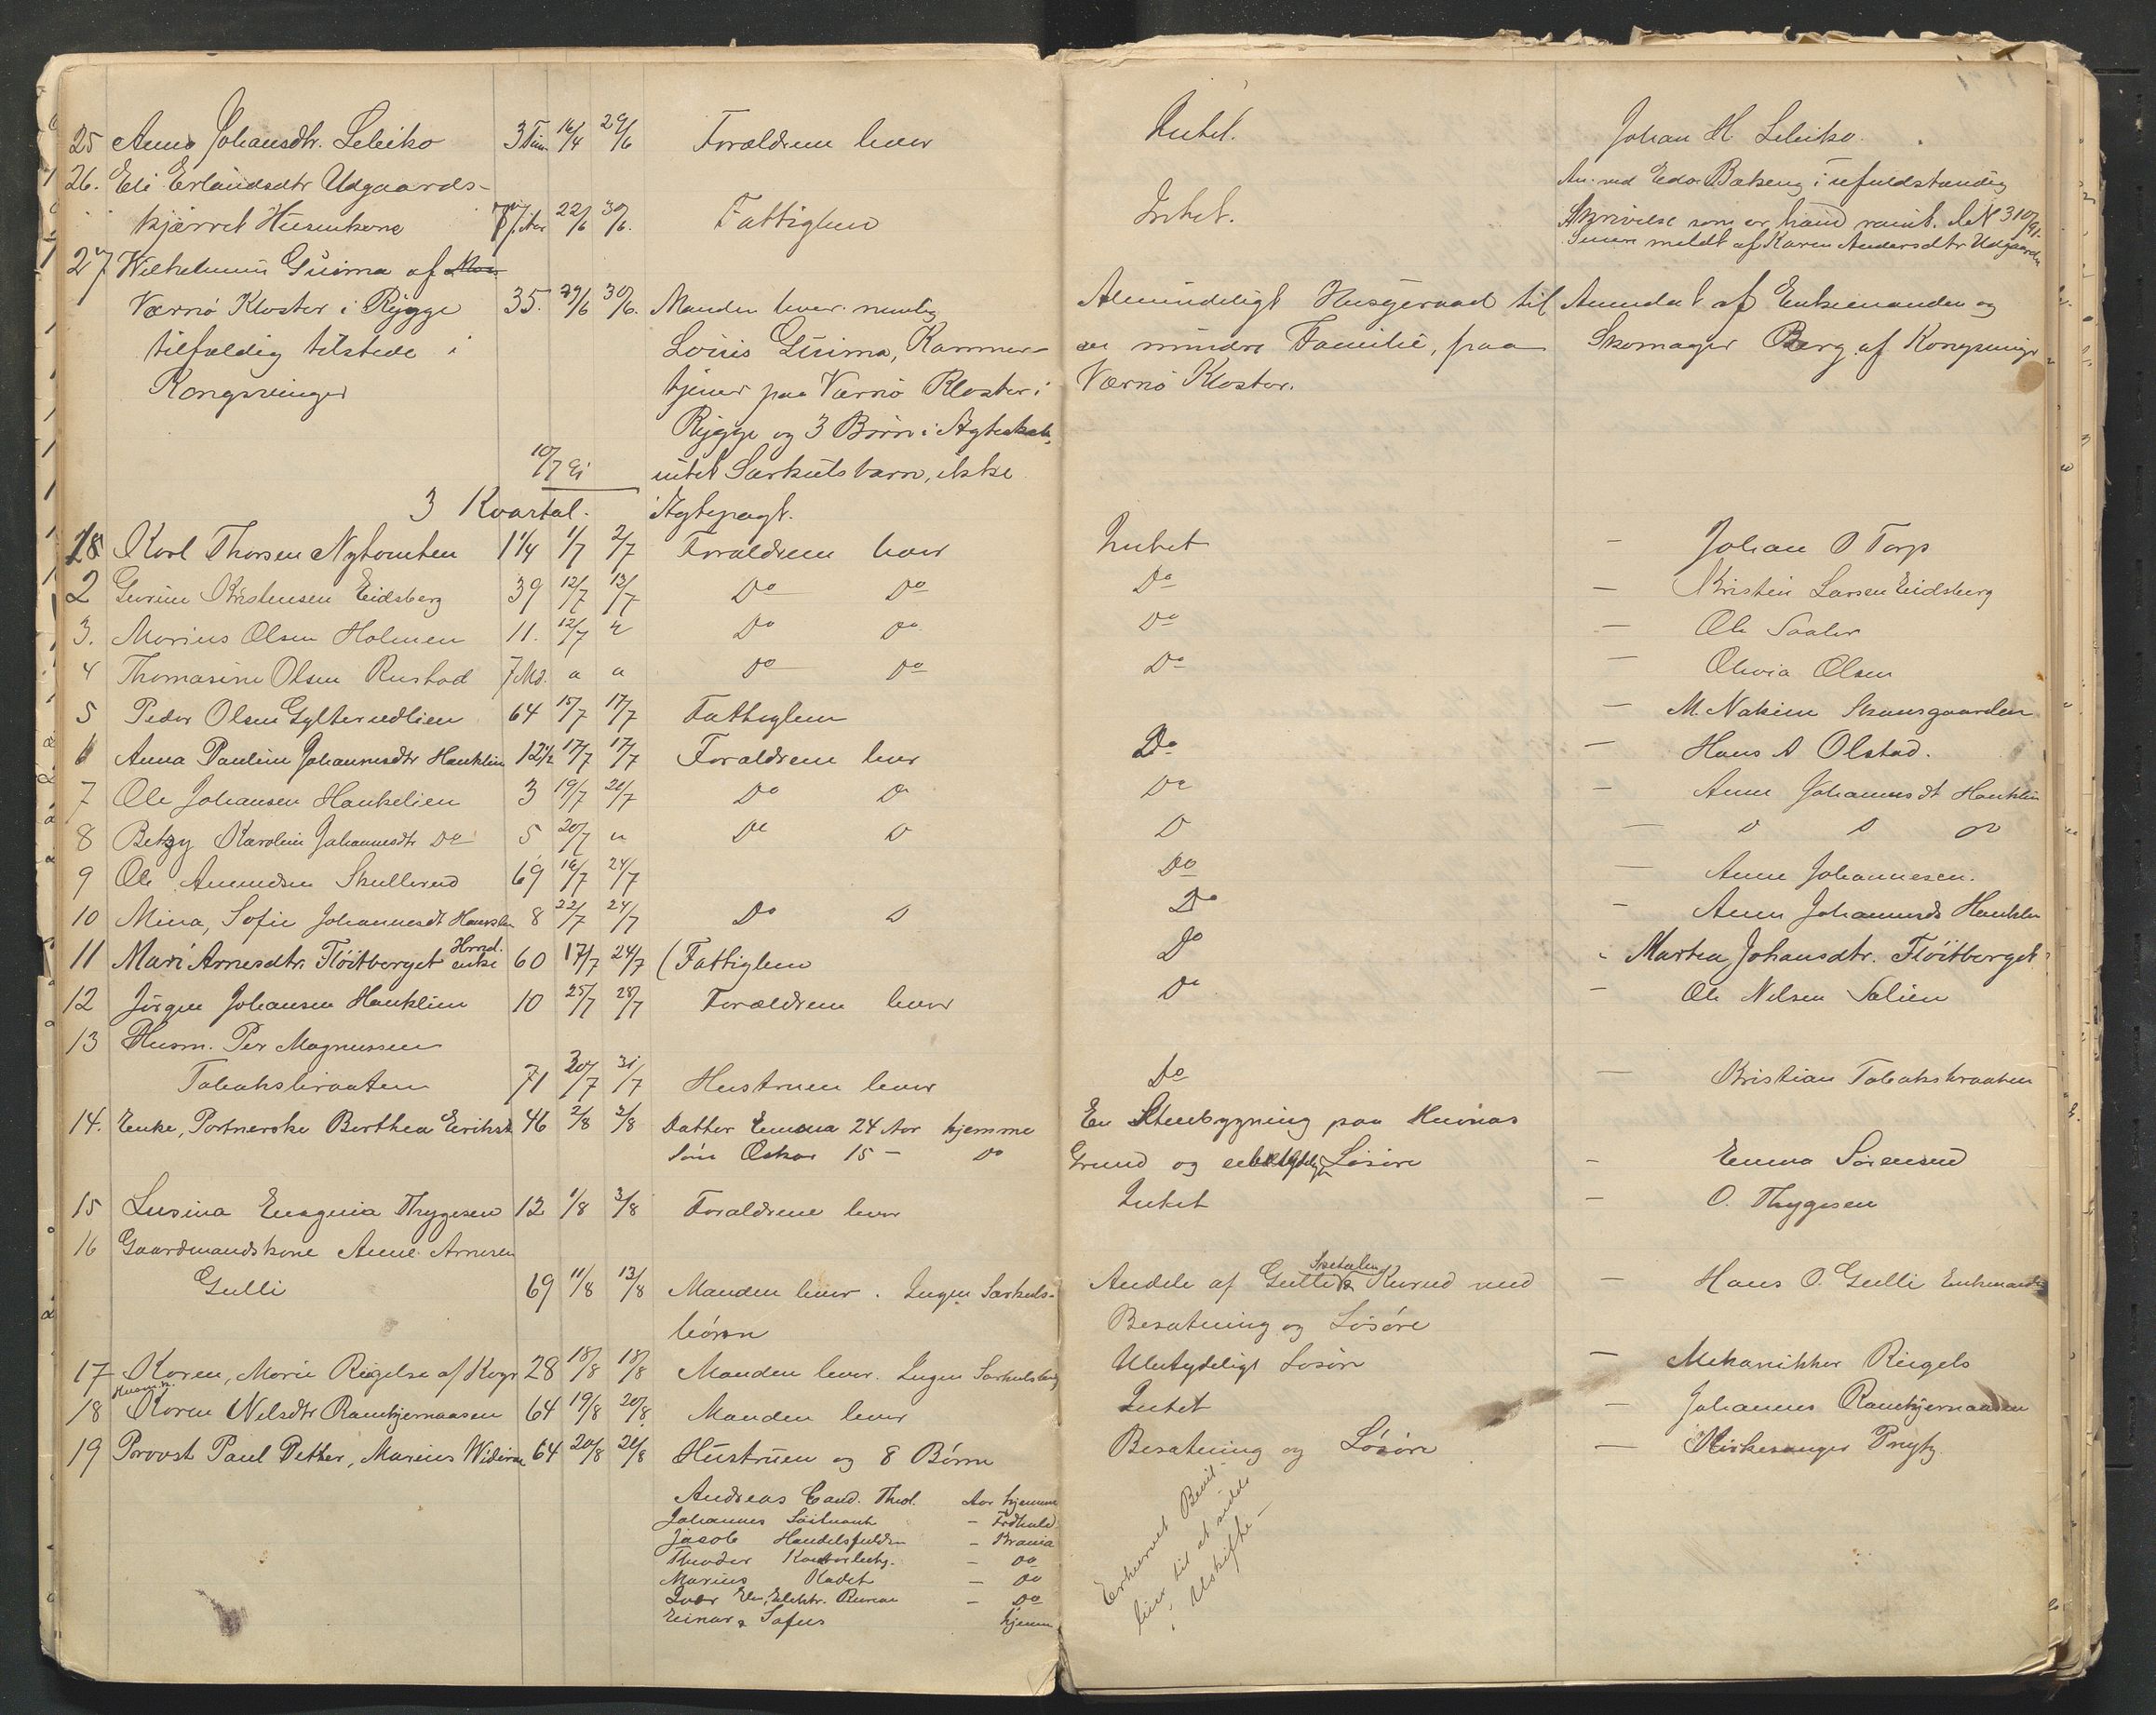 25 Anne Johansdtr. Lebiko 3 Tim. 16/4 29/6 Forældrene lever Intet. Johan H. Lebiko.
26. Eli Erlandsdtr Udgaards- An. ved Edv. Bakeng i ufuldstændig
kjærret Husmkone 22/6 30/6. Fattiglem Intet. Skrivelse som er
Senere meldt af Karen Andersdtr Udgaards
27 Wilhelmine Guima af
Værnø Kloster i Rygge 35. 29/6 30/6. Manden lever nemlig Almindeligt Husgeraad til Anmeldt af Enkemanden og
tilfældig tilstede i Louis Guima, Kammer- en mindre Familie, paa Skomager Berg af Kongsvinger
Kongsvinger tjener paa Værnø Kloster i Værnø Kloster.
Rygge og 3 Børn i Ægteskab,
10/7 91 intet Særkulsbarn, ikke
3 Kvartal. Ægtepagt.
18 Karl Thorsen Nytomten 1 1/4 1/7 2/7 Forældrene lever Intet - Johan O Torp
2 Gurine Kristensen Eidsberg 39 12/7 13/7 Do Do Do - Kristen Larsen Eidsberg
3. Marius Olsen Holmen 11. 12/7 " Do Do Do - Ole Saaler
4 Thomasine Olsen Rustad 7 Md. " " Do Do Do - Olivia Olsen
5 Peder Olsen Gylterudlien 64 15/7 17/7 Fattiglem - M. Nakim Skansgaarden
6 Anna Pauline Johannesdtr Hanklien 12 1/2 17/7 17/7 Forældrene lever Do - Hans A Olstad.
7 Ole Johansen Hankelien 3 19/7 20/7 Do Do Do - Anne Johannesdt Hanklien
8 Betzy Karoline Johannesdtr Do 5 20/7 " Do D D - D D Do
9 Ole Amundsen Skullerud 69 16/7 24/7 Do - Anne Johannesen.
10 Mina, Sofie Johannesdt Hanklien 8 22/7 24/7 Do D Do - Anne Johannesd Hanklien
11 Mari Arnesdtr. Fløitberget Hmd. enke 60 17/7 24/7 (Fattiglem Do Martea Johansdtr. Fløitberget
12 Jörgen Johansen Hanklien 10 25/7 28/7 Forældrene lever Do - Ole Nilsen Solien
13 Husm. Per Magnussen
Tobaksbraaten 71 30/7 31/7 Hustruen lever Do - Kristian Tobaksbraaten
14. Enke, Portnerske Berthea Eriksdt 46 2/8 2/8 Datter Emma 24 Aar hjemme En Stuebygning paa Husnæs
Søn Oskar 15 - Do Grund og Løsøre - Emma Sörensen
15 Lusina Eugenia Thygesen 12 1/8 3/8 Forældrene lever Intet - O. Thygesen
16 Gaardmandskone Anne Arnesen
Gulli 69 11/8 13/8 Manden lever. Ingen Særkuls- Andele af Gulli Kurud med - Hans O. Gulli Enkemand
børn Besætning og Løsøre
17 Karen, Marie Rigelse af Kvgr 28 18/8 18/8 Manden lever. Ingen Særkulsbarn Ubetydeligt Løsøre - Mekanikker Riegels
18 Husm.k. Karen Nilsdtr Ramkjernaasen 64 19/8 20/8 Manden lever Intet - Johannes Ramkjernaasen
19 Provst Paul Petter, Marius Widerøe 64 20/8 21/8 Hustruen og 8 Børn Besætning og Løsøre - Kirkesanger Prytz
Andreas Cand. Theol. Aar hjemme
Johannes Löitnant - Fredhald
Jacob Handelsfuldm - Krania
Theodor Kontorbetj. - Do
Marius Kadet - Do
Ivar Elev, Elektr. Bureau - Do
Einar & Sofus hjemme
Erhvervet Bevil-
ling til at sidde
i Uskifte -